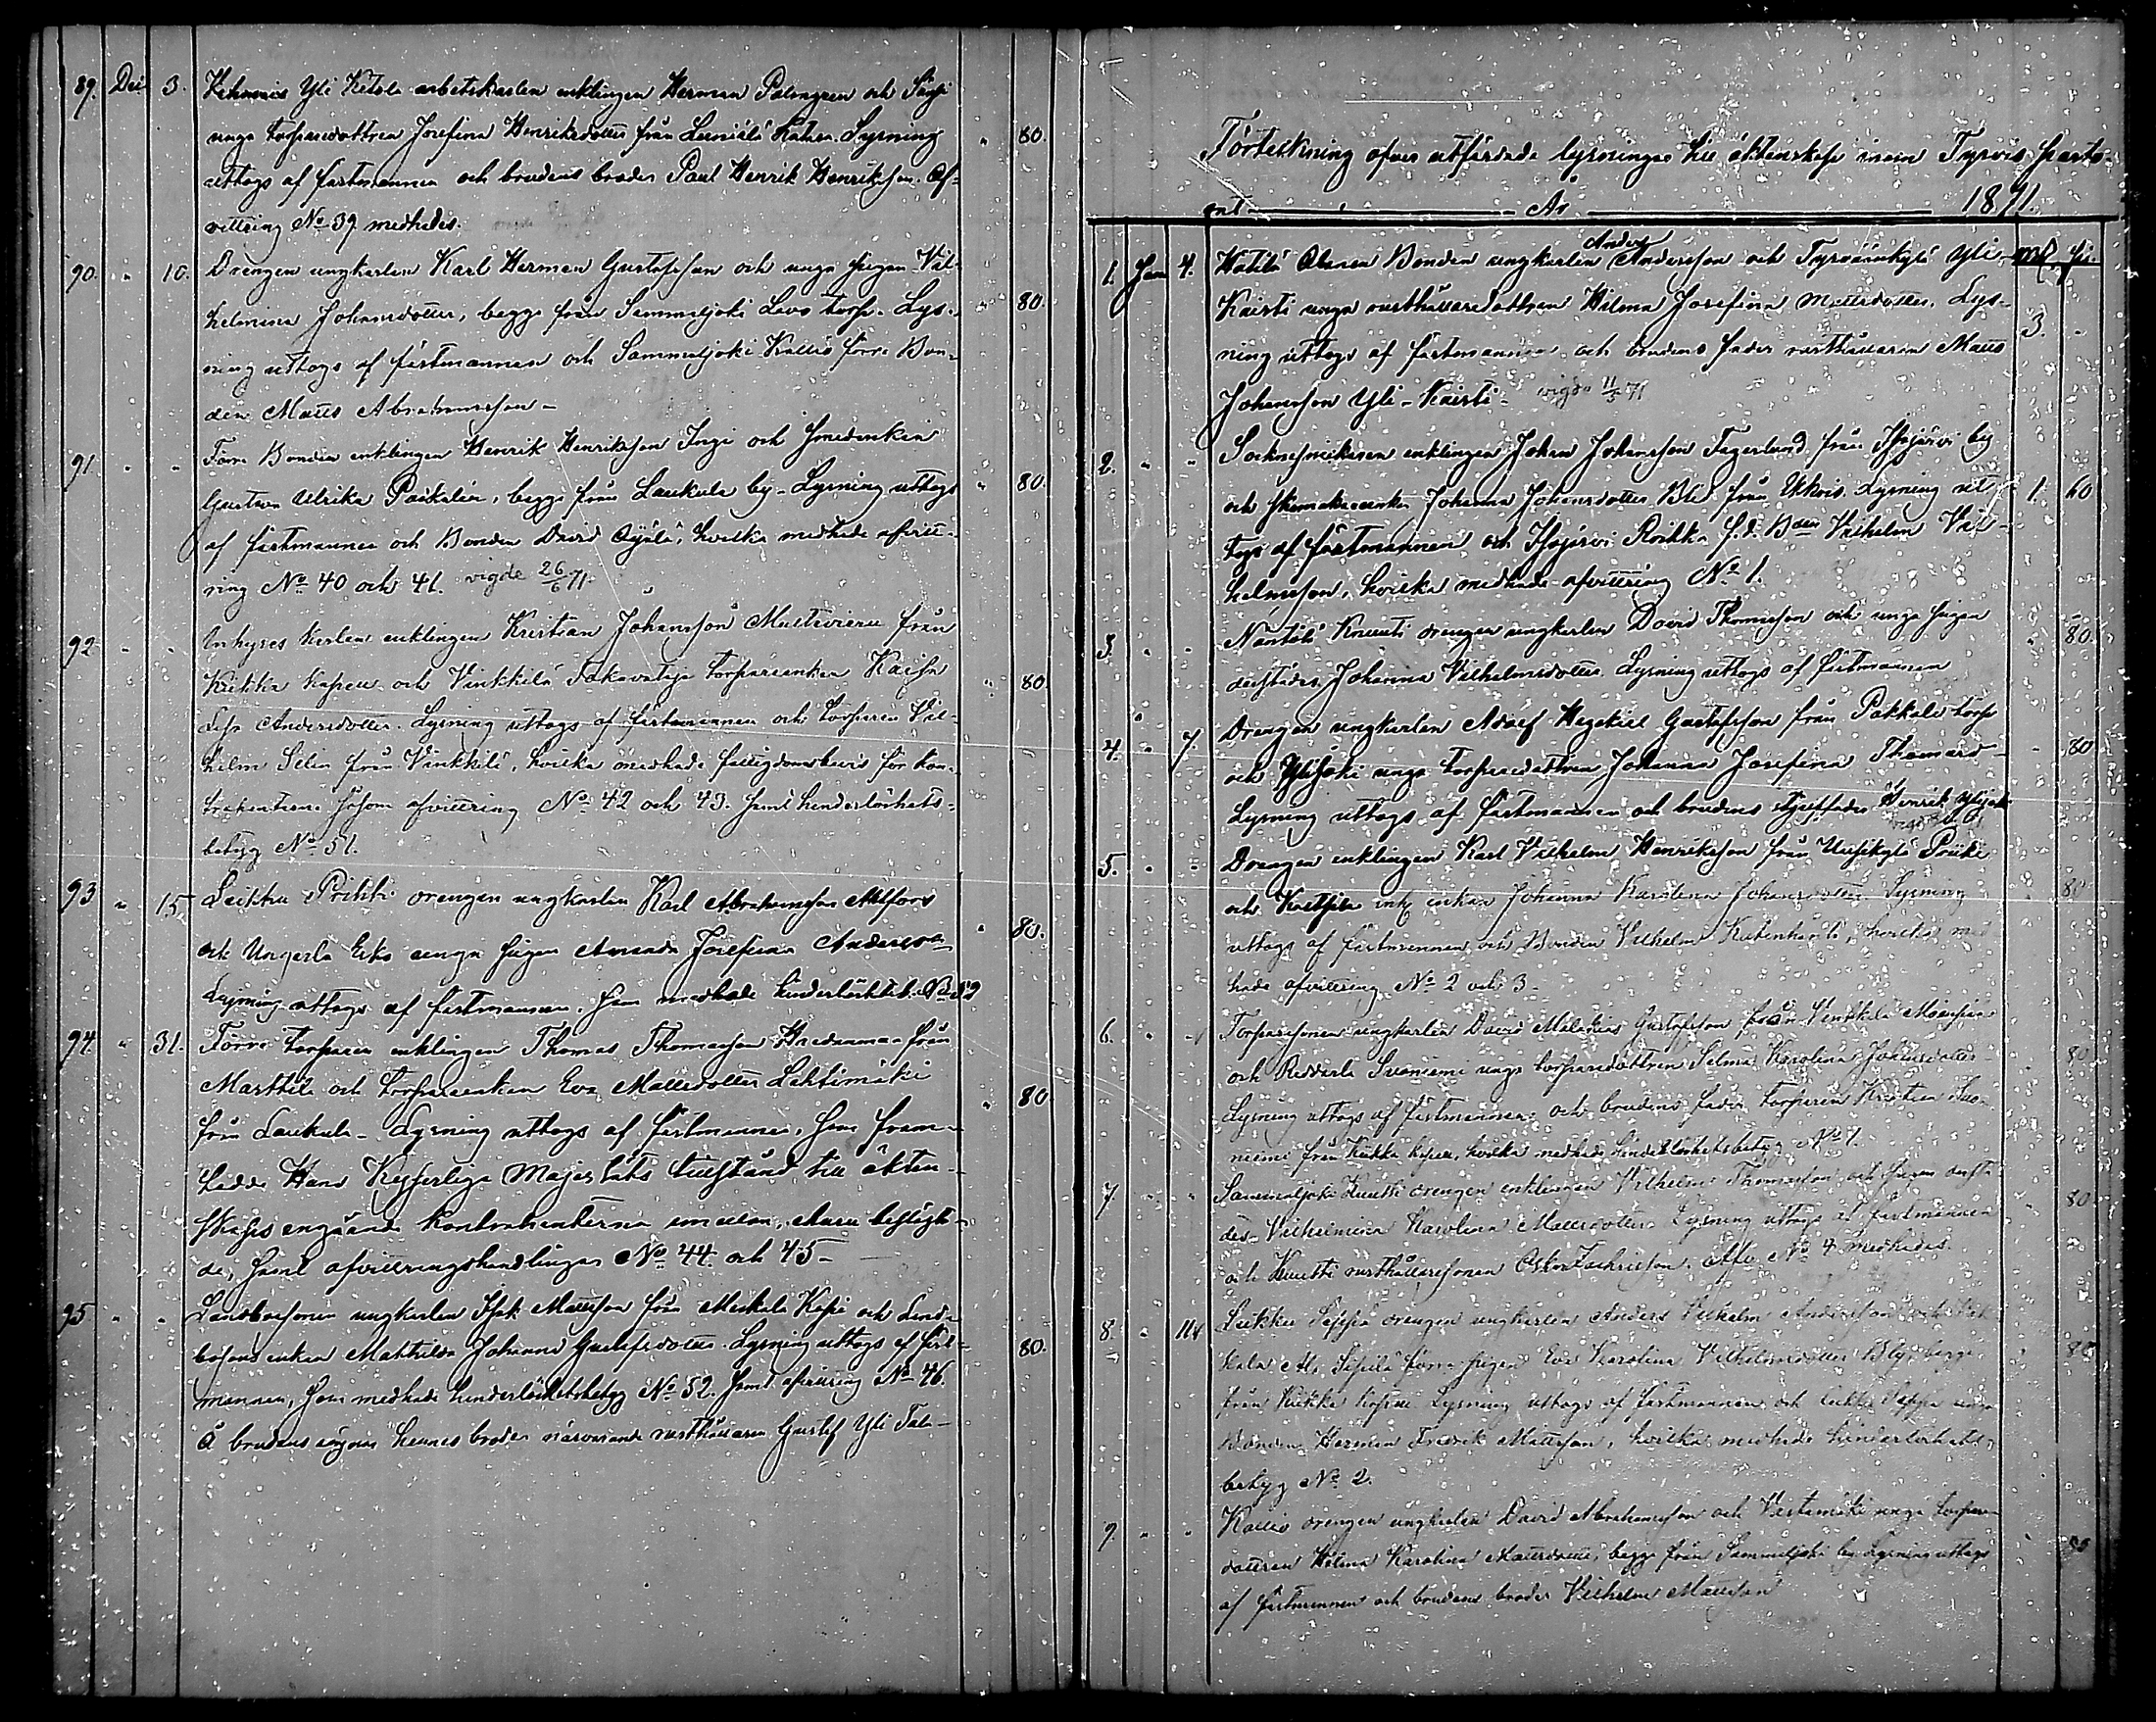 89. Dec 3. Yli Ketola arbetskarlen enklingen Herman Palmgren och
unga torparedottren Josefina Henriksdotter från Lysning " 80.
uttogs af fästmannen och brudens broder Paul Henrik Henriksson. Af-
vittring No 39 medhades.
90. " 10. Drengen ungkarlen Karl Herman Gustafsson och unga pigan Vil-
helmina Johansdotter, begge från Sammaljoki Lavo torp. Lys- " 80.
ning uttogs af fästmannen och Sammaljoki Kallis förra Bon-
den Matts Abrahamsson –
91. " " Förre Bonden enklingen Henrik Henriksson och Smedenkan
Gustava Ulrika, begge från Laukula by – Lysning uttogs " 80.
af fästmannen och Bonden David Äijälä, hvilka medhade afvitt-
ring No 40 och 41. vigde 26/6 71
92. " " Inhyses karlen enklingen Kristian Johansson från
Kiikka kapell och Vinkkilä torpareenkan Kaisa " 80.
Lisa Andersdotter. Lysning uttogs af fästmannen och torparen Vil-
helm Selin från Vinkkilä, hvilka medhade fattigdomsbevis för kon-
trahenterne såsom afvittring No 42 och 43. samt hinderlöshets-
betyg No 51.
93 " 15. Leikku Prihti drengen ungkarlen Karl Abrahamsson
och Ungerla unga pigan Amanda Josefina Andersd. " 80.
Lysning uttogs af fästmannen, som medhade hinderlöshetsb.
94. " 31. Förre torparen enklingen Thomas Thomasson från
Marttila och torpareenkan Eva Mattsdotter Lehtimäki " 80
från Laukula – Lysning uttogs af fästmannen, som fram-
ladde Hans Kejserliga Majestäts tillstånd till äkten-
skaps ingående kontrahenterna emellan,
de, samt afvittringshandlingar No 44 och 45 –
95 " " Landbosonen ungkarlen Isak Mattsson från och Land-
bosons enkan Mathilda Johanna Gustafsdotter. Lysning uttogs af fäst- 80.
mannen, som medhade hinderlöshetsbetyg No 52. samt afvittring No 46.
Å brudens vägnar hennes broder närvarande rusthållaren Gustaf Yli
Förteckning öfver utfärdade lysningar till äktenskap inom Tyrvis pasto-
rat – År – 1871.
mk pi.
1. Jan 4. Bonden ungkarlen Anders Andersson och Tyrväänkylä Yli-
Kaisti unga rusthållaredottren Hilma Josefina Mattsdotter. Lys- 3. -
ning uttogs af fästmannen och brudens fader rusthållaren Matts
Johansson Yli-Kaisti – vigde 11/3 71
2. " " Sockneskräddaren enklingen Johan Johansson Fagerlund från by
och Johanna Johansdotter från Lysning ut- 1. 60
togs af fästmannen och f.d. Bden Vilhelm Vil-
helmsson, hvilka medhade afvittring No 1.
3. " " Nantilä Knuuti drengen ungkarlen David Thomasson och unga pigan " 80
derstädes Johanna Vilhelmsdotter. Lysning uttogs af fästmannen
4. " 7. Drengen ungkarlen Adolf Hezekiel Gustafsson från torp
och unga torparedottren Johanna Josefina Thomasd. – " 80
Lysning uttogs af fästmannen och brudens styffader Henrik
5. " " Drengen enklingen Karl Vilhelm Henriksson från Uusikylä
och enkan Johanna Karolina Johansdotter Lysning 80
uttogs af fästmannen och Bonden Vilhelm, hvilka med
hade afvittring No 2 och 3 –
6. " " Torparesonen ungkarlen David Malakias Gustafsson från Vinkkilä
och unga torparedottren Selma Karolina Johansdotter 80
Lysning uttogs af fästmannen och brudens fader torparen Kristian Suo-
niemi från Kiikka kapell, hvilka medhade hinderlöshetsbetyg No 1.
7. " " Sammaljoki Knutti drengen enklingen Vilhelm Thomasson och pigan derstä-
des Vilhelmina Karolina Mattsdotter. Lysning uttogs af fästmannen 80
och Knutti rusthållaresonen Oskar Zachrisson. Afv. No 4 medhades.
8. " 11. Leikku Seppä drengen ungkarlen Anders Vilhelm Andersson och
förra pigan Eva Karolina Vilhelmsdotter begge 80
från Kiikka kapell. Lysning uttogs af fästmannen och Seppä
Bonden Herman Fredrik Mattsson, hvilka medhade hinderlöshets-
betyg No 2.
9. " " Kallis drengen ungkarlen David Abrahamsson och unga torpare-
dottren Hilma Karolina Mattsdotter, begge från Sammaljoki by. Lysning uttogs 80
af fästmannen och brudens broder Vilhelm Mattsson